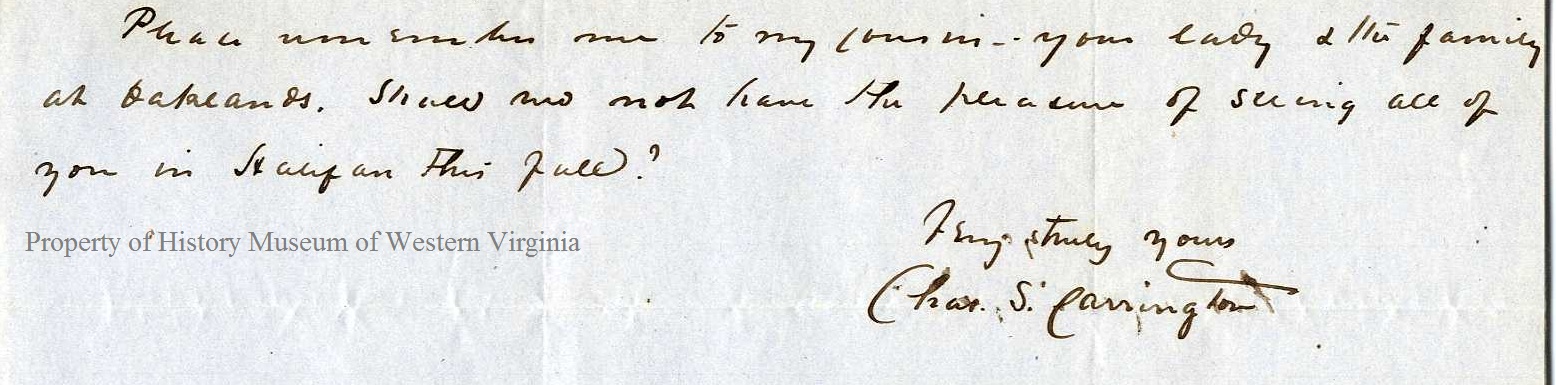 Please remember me to my cousin - your lady & the family
at Oaklands. Shall we not have the pleasure of seeing all of
you in Halifax this fall?
Very truly yours
Property of History Museum of Western Virginia
Chas. S. Carrington